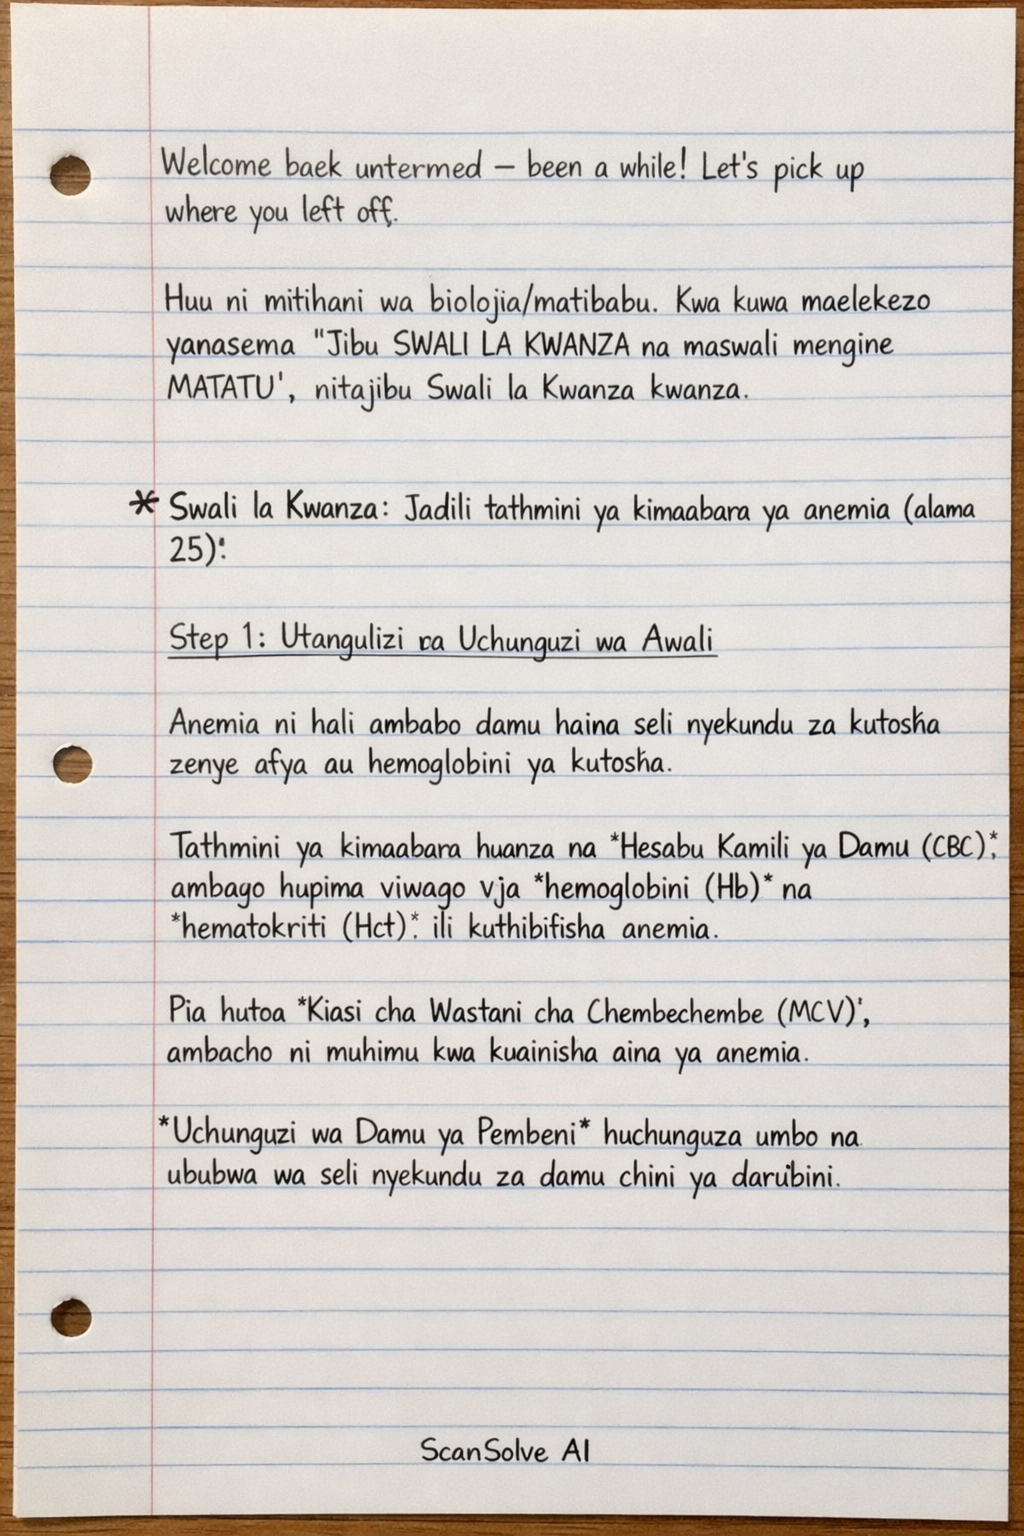 Welcome baek untermed – been a while! Let's pick up
where you left off.
Huu ni mitihani wa biolojia/matibabu. Kwa kuwa maelekezo
yanasema "Jibu SWALI LA KWANZA na maswali mengine
MATATU', nitajibu Swali la Kwanza kwanza.
* Swali la Kwanza: Jadili tathmini ya kimaabara ya anemia (alama
25):
Step 1: Utangulizi ca Uchunguzi wa Awali
Anemia ni hali ambabo damu haina seli nyekundu za kutosha
zenye afya au hemoglobini ya kutosha.
Tathmini ya kimaabara huanza na *Hesabu Kamili ya Damu (CBC)*,
ambago hupima viwago vja *hemoglobini (Hb)* na
*hematokriti (Hct)*. ili kuthibifisha anemia.
Pia hutoa *Kiasi cha Wastani cha Chembechembe (MCV)',
ambacho ni muhimu kwa kuainisha aina ya anemia.
*Uchunguzi wa Damu ya Pembeni* huchunguza umbo na
ububwa wa seli nyekundu za damu chini ya darubini.
ScanSolve AI